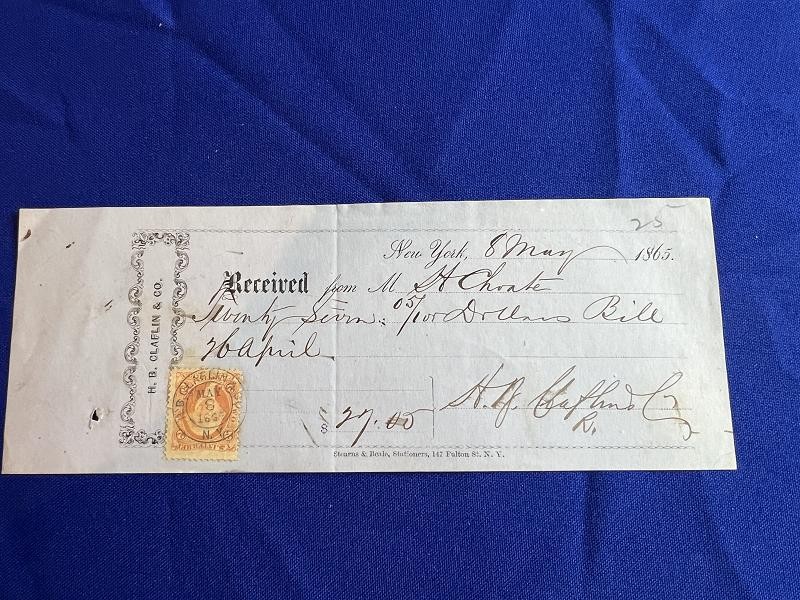 25
New York, 8 May 1865.
Received from M H Choate
Twenty Seven: 05/100 Dollars Bill
26 April.
$ 27.05
H. B. Claflin & Co
K.
H. B. CLAFLIN & CO.
MAY
8
186
N.Y.
Stearns & Beale, Stationers, 147 Fulton St. N. Y.